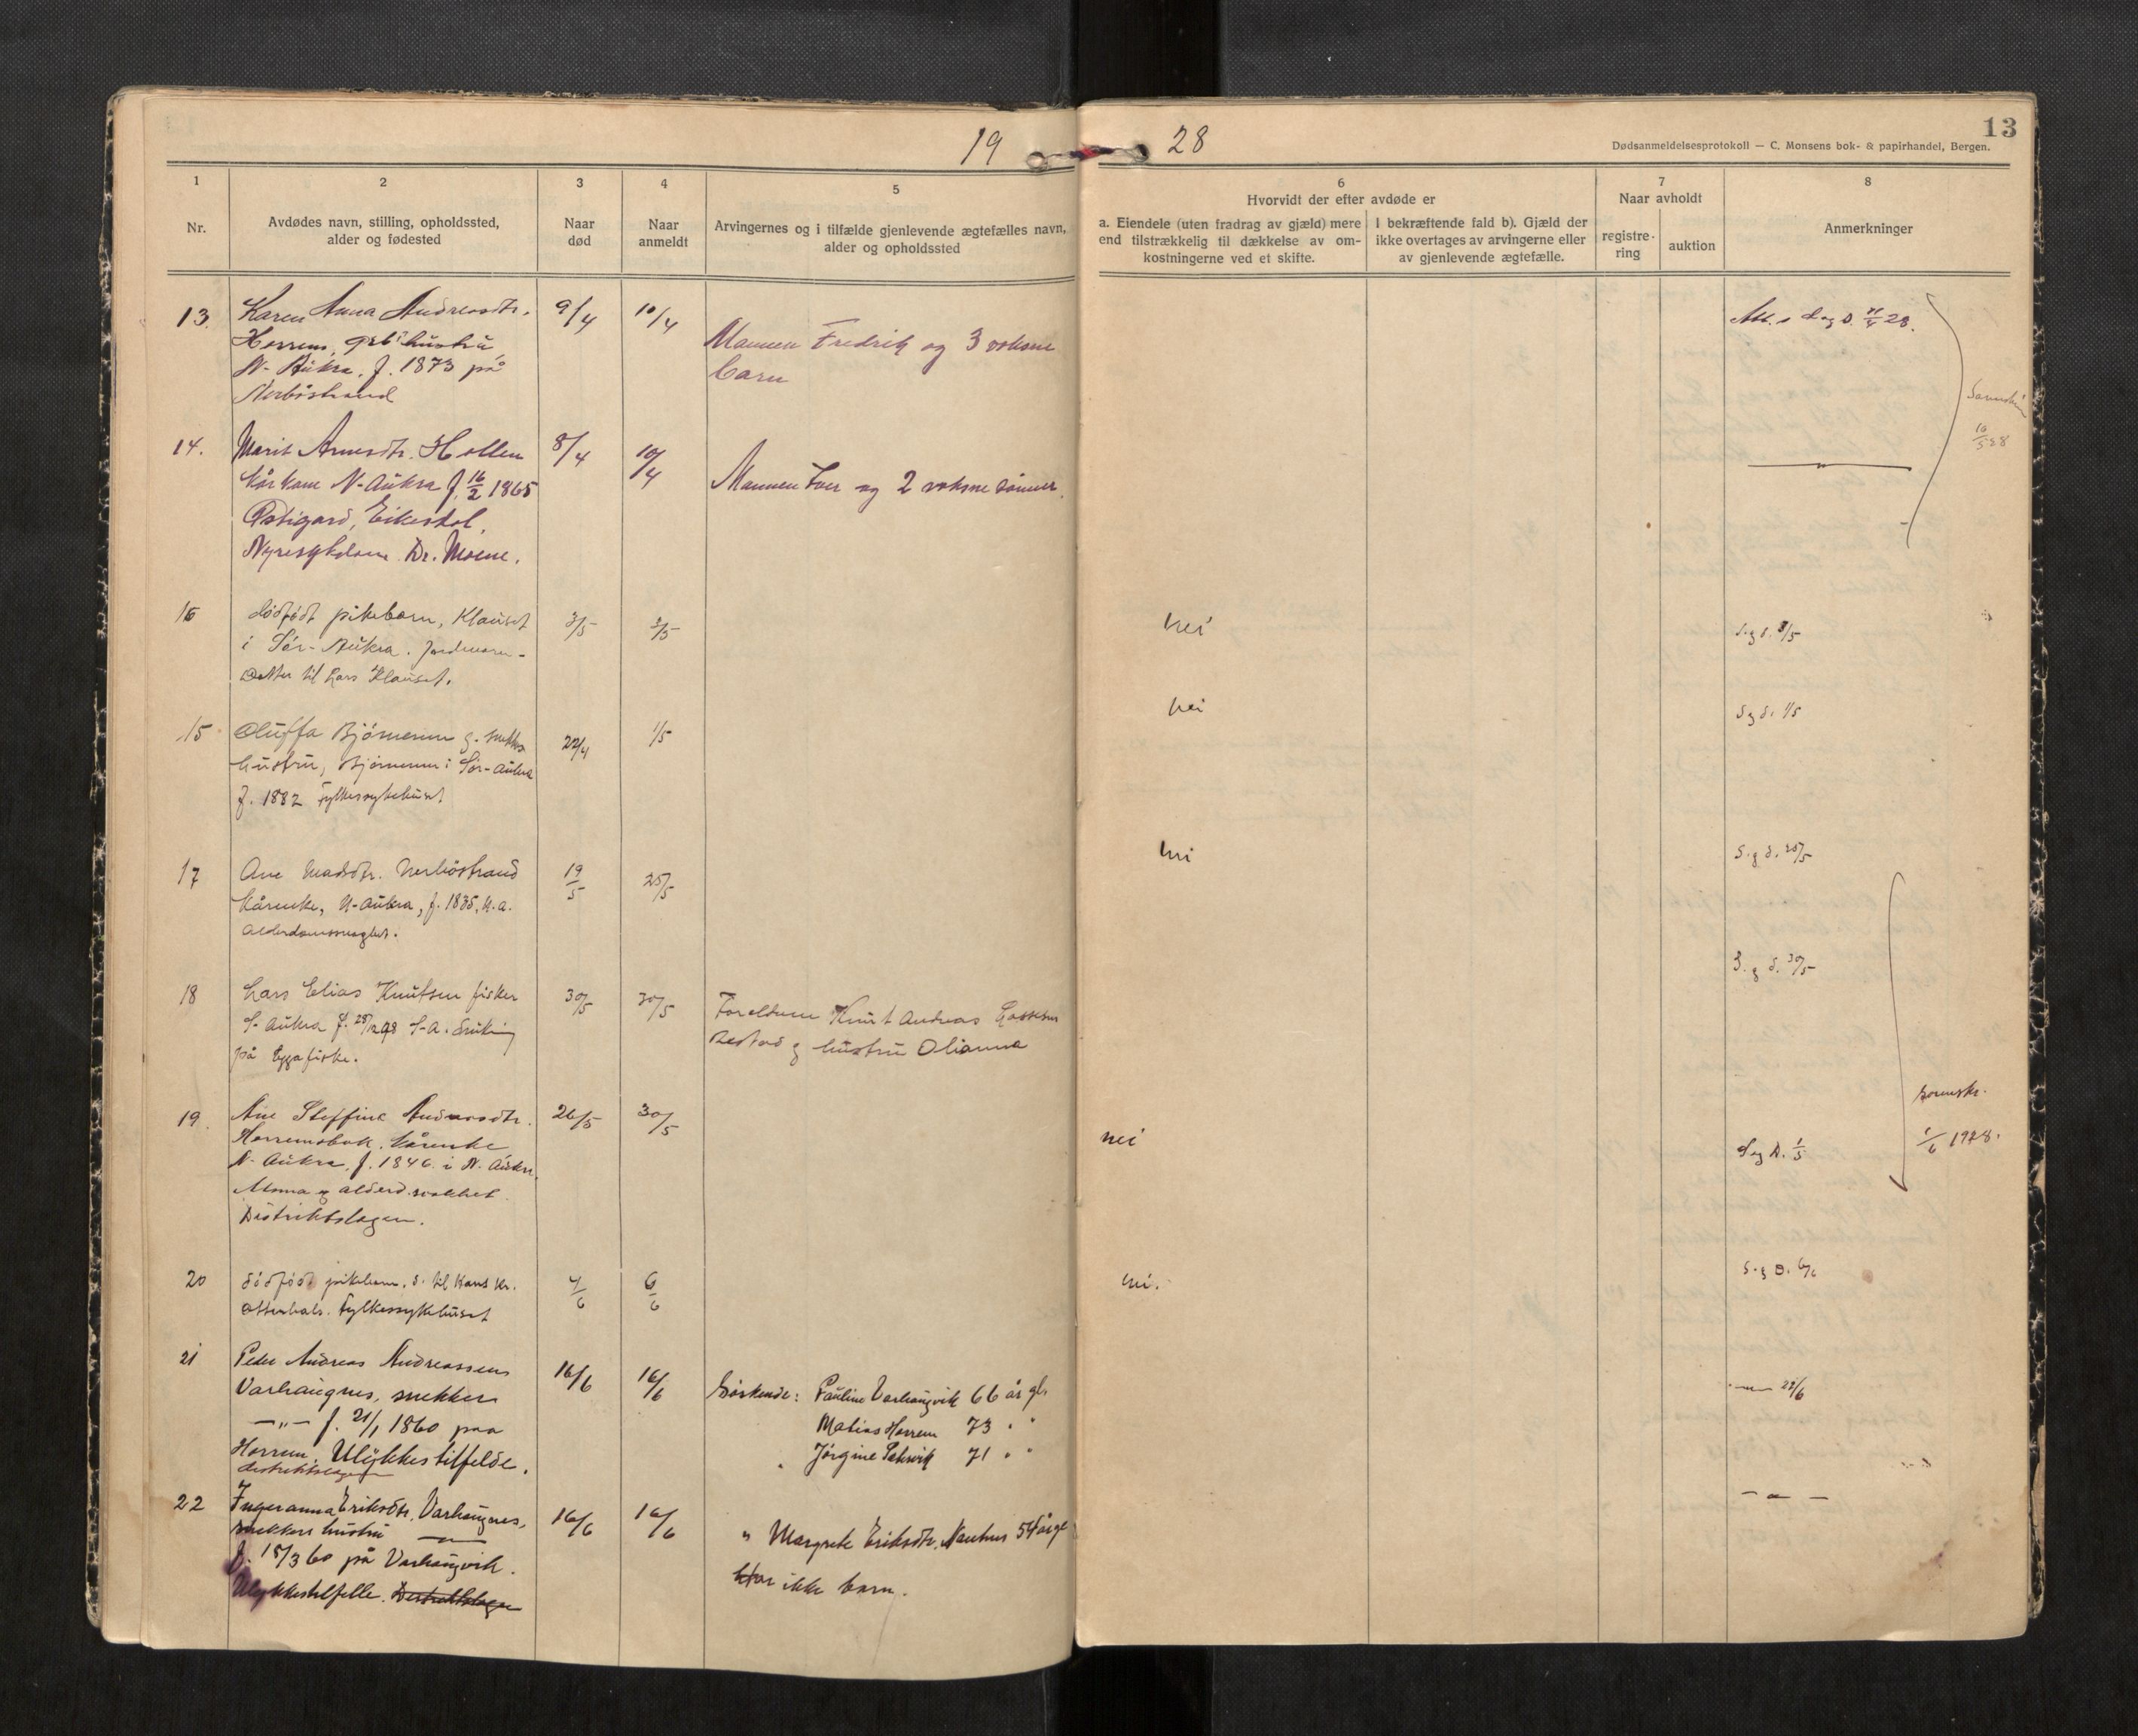 19 28
13
Dødsanmeldelsesprotokoll — C. Monsens bok- & papirhandel, Bergen.
1
Nr.
2
Avdødes navn, stilling, opholdssted,
alder og fødested
3
Naar
død
4
Naar
anmeldt
5
Arvingernes og i tilfælde gjenlevende ægtefælles navn,
alder og opholdssted
6
Hvorvidt der efter avdøde er
a. Eiendele (uten fradrag av gjæld) mere
end tilstrækkelig til dækkelse av om-
kostningerne ved et skifte.
I bekræftende fald b). Gjæld der
ikke overtages av arvingerne eller
av gjenlevende ægtefælle.
7
Naar avholdt
registre-
ring
auktion
8
Anmerkninger
13. Karen Anna Andreasdtr. 9/4 10/4
Horrem, grb.hustru
N- Aukra, f. 1873 på
Nerbøstrand
Mannen Fredrik og 3 voksne
barn
14. Marit Arnesdtr. Hollen 8/4 10/4
kårkone N-Aukra f. 16/2 1865
Østigard, Eikesdal.
Nyresykdom. Dr. Moene.
Mannen Iver og 2 voksne sönner.
16
5 28
16 dödfödt pikebarn, Klauset 3/5 3/5 nei S.g d. 3/5
i Sör-Aukra.
Datter til Lars Klauset.
15 Oluffa Björnerem g. 22/4 1/5 nei S g d. 1/5
hustru, Björnerem i Sör-Aukra
f. 1882 Fylkessykehuset
17 Ane Madsdtr. Nerböstrand 19/5 25/5 nei S.g d. 25/5
kårenke, N-Aukra, f. 1835, N.a.
Alderdomssvaghet.
18 Lars Elias Knutsen fisker 30/5 30/5 S. g d. 30/5
S-Aukra f. 28/12 98 S-A.
på Eggafiske.
Foreldrene Knut Andreas
g hustru Olianna
19. Ane Steffina Andreasdtr. 26/5 30/5 nei
Horremsbak, kårenke
N- Aukra, f. 1846 i N. Aukra.
Astma og alderd.svakhet.
Distriktslegen.
sorenskr.
1/6 1928.
20 dödfödt pikebarn, d. til Hans Kr. 4/6 6/6 nei. S.g D. 6/6
Otterhals. Fylkessykehuset
21 Peder Andreas Andreassen 16/6 16/6
Varhaugnes, snekker
—„— f. 21/1 1860 paa
Horrem. Ulykkestilfelde.
distriktslegen
Söskende: Pauline Varhaugvik 66 år gl.
Matias Horrem 73 „ „
Jörgine 71 „ „
22 Ingeranna Eriksdtr. Varhaugnes, 16/6 16/6
snekkers hustru —„—
f. 15/3 60 på Varhaugvik.
Ulykkestilfelle. Distriktslegen
„ Margrete Eriksdtr. 54 år gl
har ikke barn.